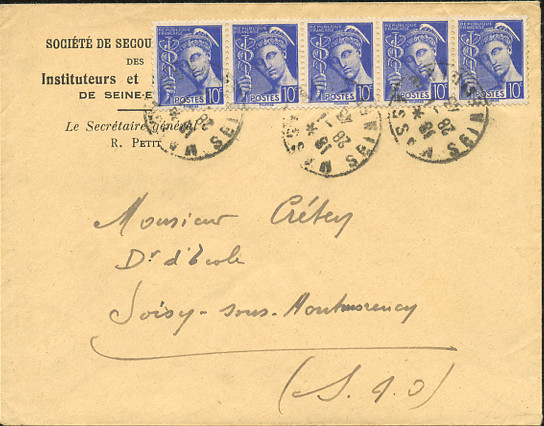 SOCIÉTÉ DE SECOU
DES
Instituteurs et
DE SEINE-E
Le Secrétaire général
R. PETIT
REPUBLIQUE FRANÇAISE
POSTES 10c
REPUBLIQUE FRANÇAISE
POSTES 10c
REPUBLIQUE FRANÇAISE
POSTES 10c
REPUBLIQUE FRANÇAISE
POSTES 10c
REPUBLIQUE FRANÇAISE
POSTES 10c
Monsieur Crétey
Dr d'Ecole
Soisy-sous-Montmorency
(S.&O)